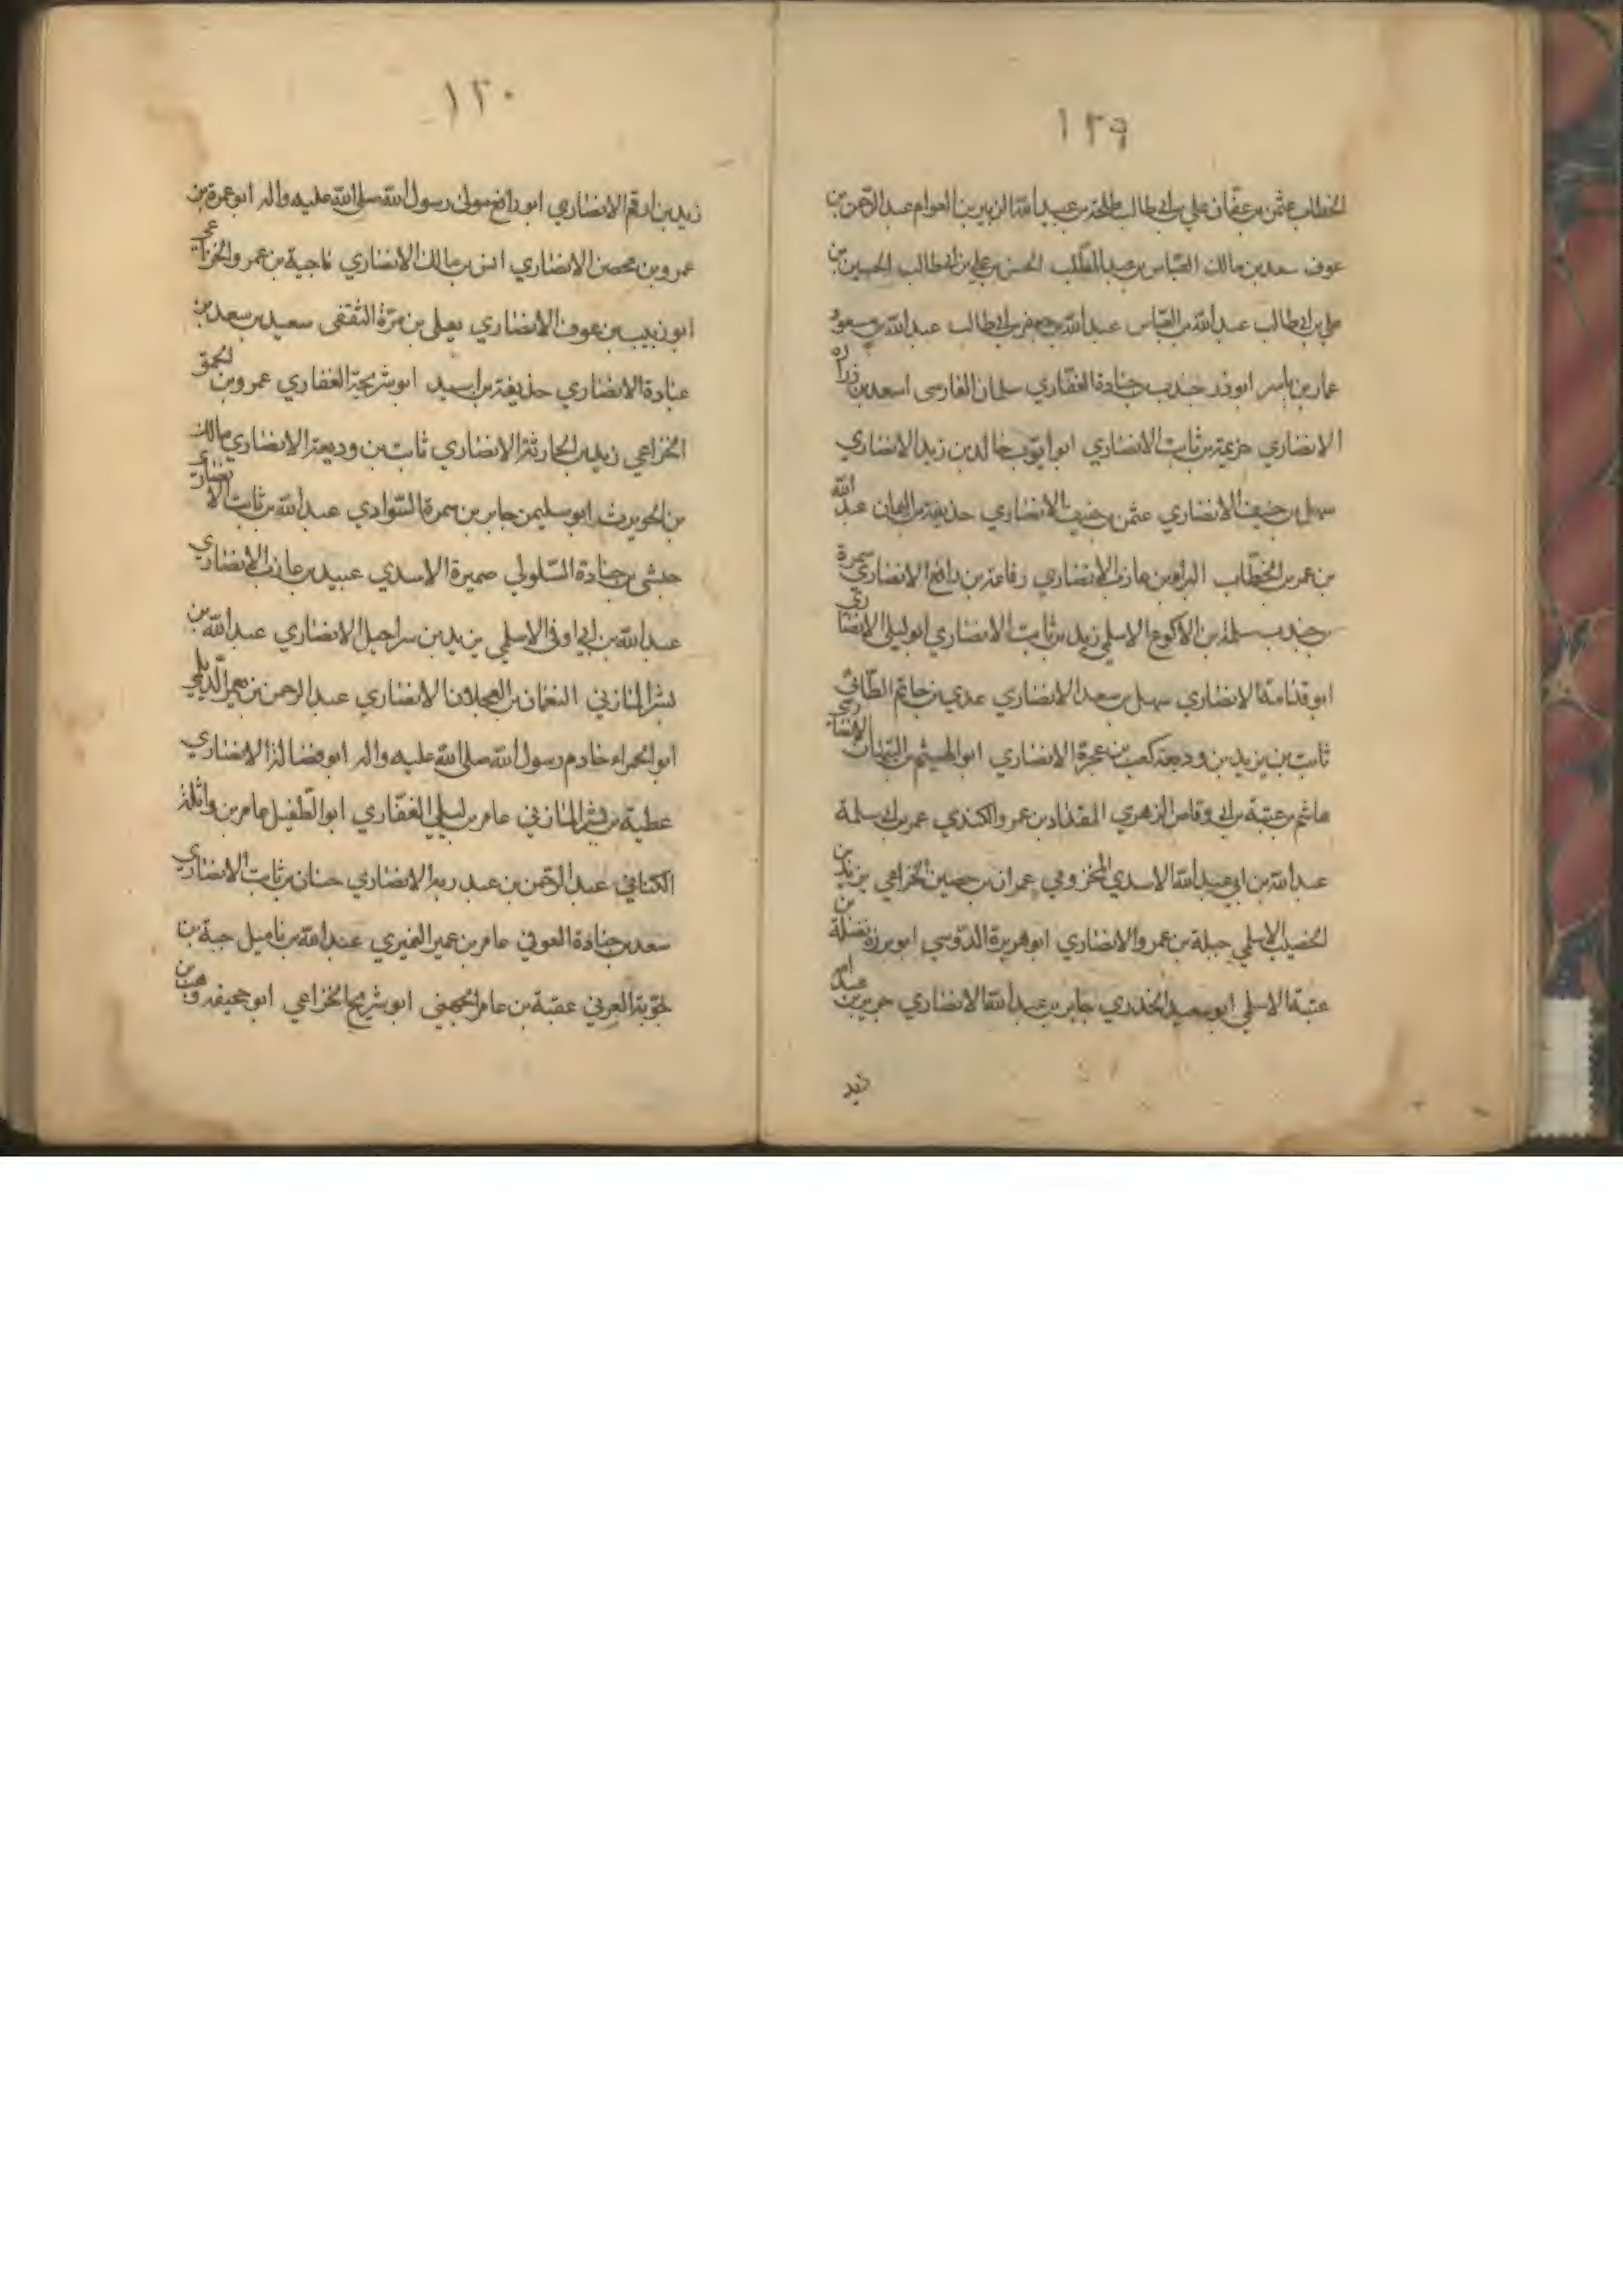 ١٢٩
الخطاب عثمن بن عفان علي بن ابي طالب طلحة بن عبيد الله الزبير بن العوام عبد الرحمن بن
عوف سعد بن مالك العباس بن عبد المطلب الحسن بن علي بن ابي طالب الحسين بن
علي بن ابي طالب عبد الله بن العباس عبد الله بن جعفر بن ابي طالب عبد الله بن مسعود
عمار بن ياسر ابوذر جندب بن جنادة الغفاري سلمان الفارسى اسعد بن زراره
الانصاري خزيمة بن ثابت الانصاري ابو ايوب خالد بن زيد الانصاري
سهل بن حنيف الانصاري عثمن بن حنيف الانصاري حذيفة بن اليمان عبد الله
بن عمر بن الخطاب البراء بن عازب الانصاري رفاعة بن رافع الانصاري سمرة
بن جندب سلمة بن الاكوع الاسلمي زيد بن ثابت الانصاري ابو ليلى الانصاري
ابو قدامة الانصاري سهل بن سعد الانصاري عدي بن حاتم الطائي
ثابت بن يزيد بن وديعة كعب بن عجرة الانصاري ابو الهيثم بن التيهان الانصاري
هاشم بن عتبة بن ابي وقاص الزهري المقداد بن عمرو الكندي عمر بن ابي سلمة
عبد الله بن ابي عبد الله الاسدي المخزومي عمران بن حصين الخزاعي بن يزيد بن
الخصيب الاسلمي جبلة بن عمرو الانصاري ابو هريرة الدوسي ابو برزة نضلة بن
عتبة الاسلمي ابو سعيد الخدري جابر بن عبد الله الانصاري جرير بن عبد الله
زيد
١٣٠
زيد بن ارقم الانصاري ابو رافع مولى رسول الله صلى الله عليه واله ابو عمرة بن
عمرو بن محصن الانصاري انس بن مالك الانصاري ناجية بن عمرو الخزاعي
ابو زبيب بن عوف الانصاري يعلى بن مرة الثقفى سعيد بن سعد بن
عبادة الانصاري حذيفة بن اسيد ابو شريحة الغفاري عمرو بن الحمق
الخزاعي زيد بن الحارثة الانصاري ثابت بن وديعة الانصاري مالك
بن الحويرث ابو سليمن جابر بن سمرة السوادي عبد الله بن ثابت الانصاري
حبشى بن جنادة السلولي ضميرة الاسدي عبيد بن عازب الانصاري
عبد الله بن ابي اوفى الاسلمي يزيد بن شراحيل الانصاري عبد الله بن
بشر المازني النعمان بن العجلان الانصاري عبد الرحمن بن يعمر الديلمي
ابو الحمراء خادم رسول الله صلى الله عليه واله ابو فضالة الانصاري
عطية بن بشر المازني عامر بن ليلى الغفاري ابو الطفيل عامر بن واثلة
الكناني عبد الرحمن بن عبد ربه الانصاري حسان بن ثابت الانصاري
سعد بن جنادة العوفي عامر بن عمير النميري عبد الله بن ياميل حبة بن
جوية العرني عقبة بن عامر الجهني ابو شريح الخزاعي ابو جحيفة وهب بن